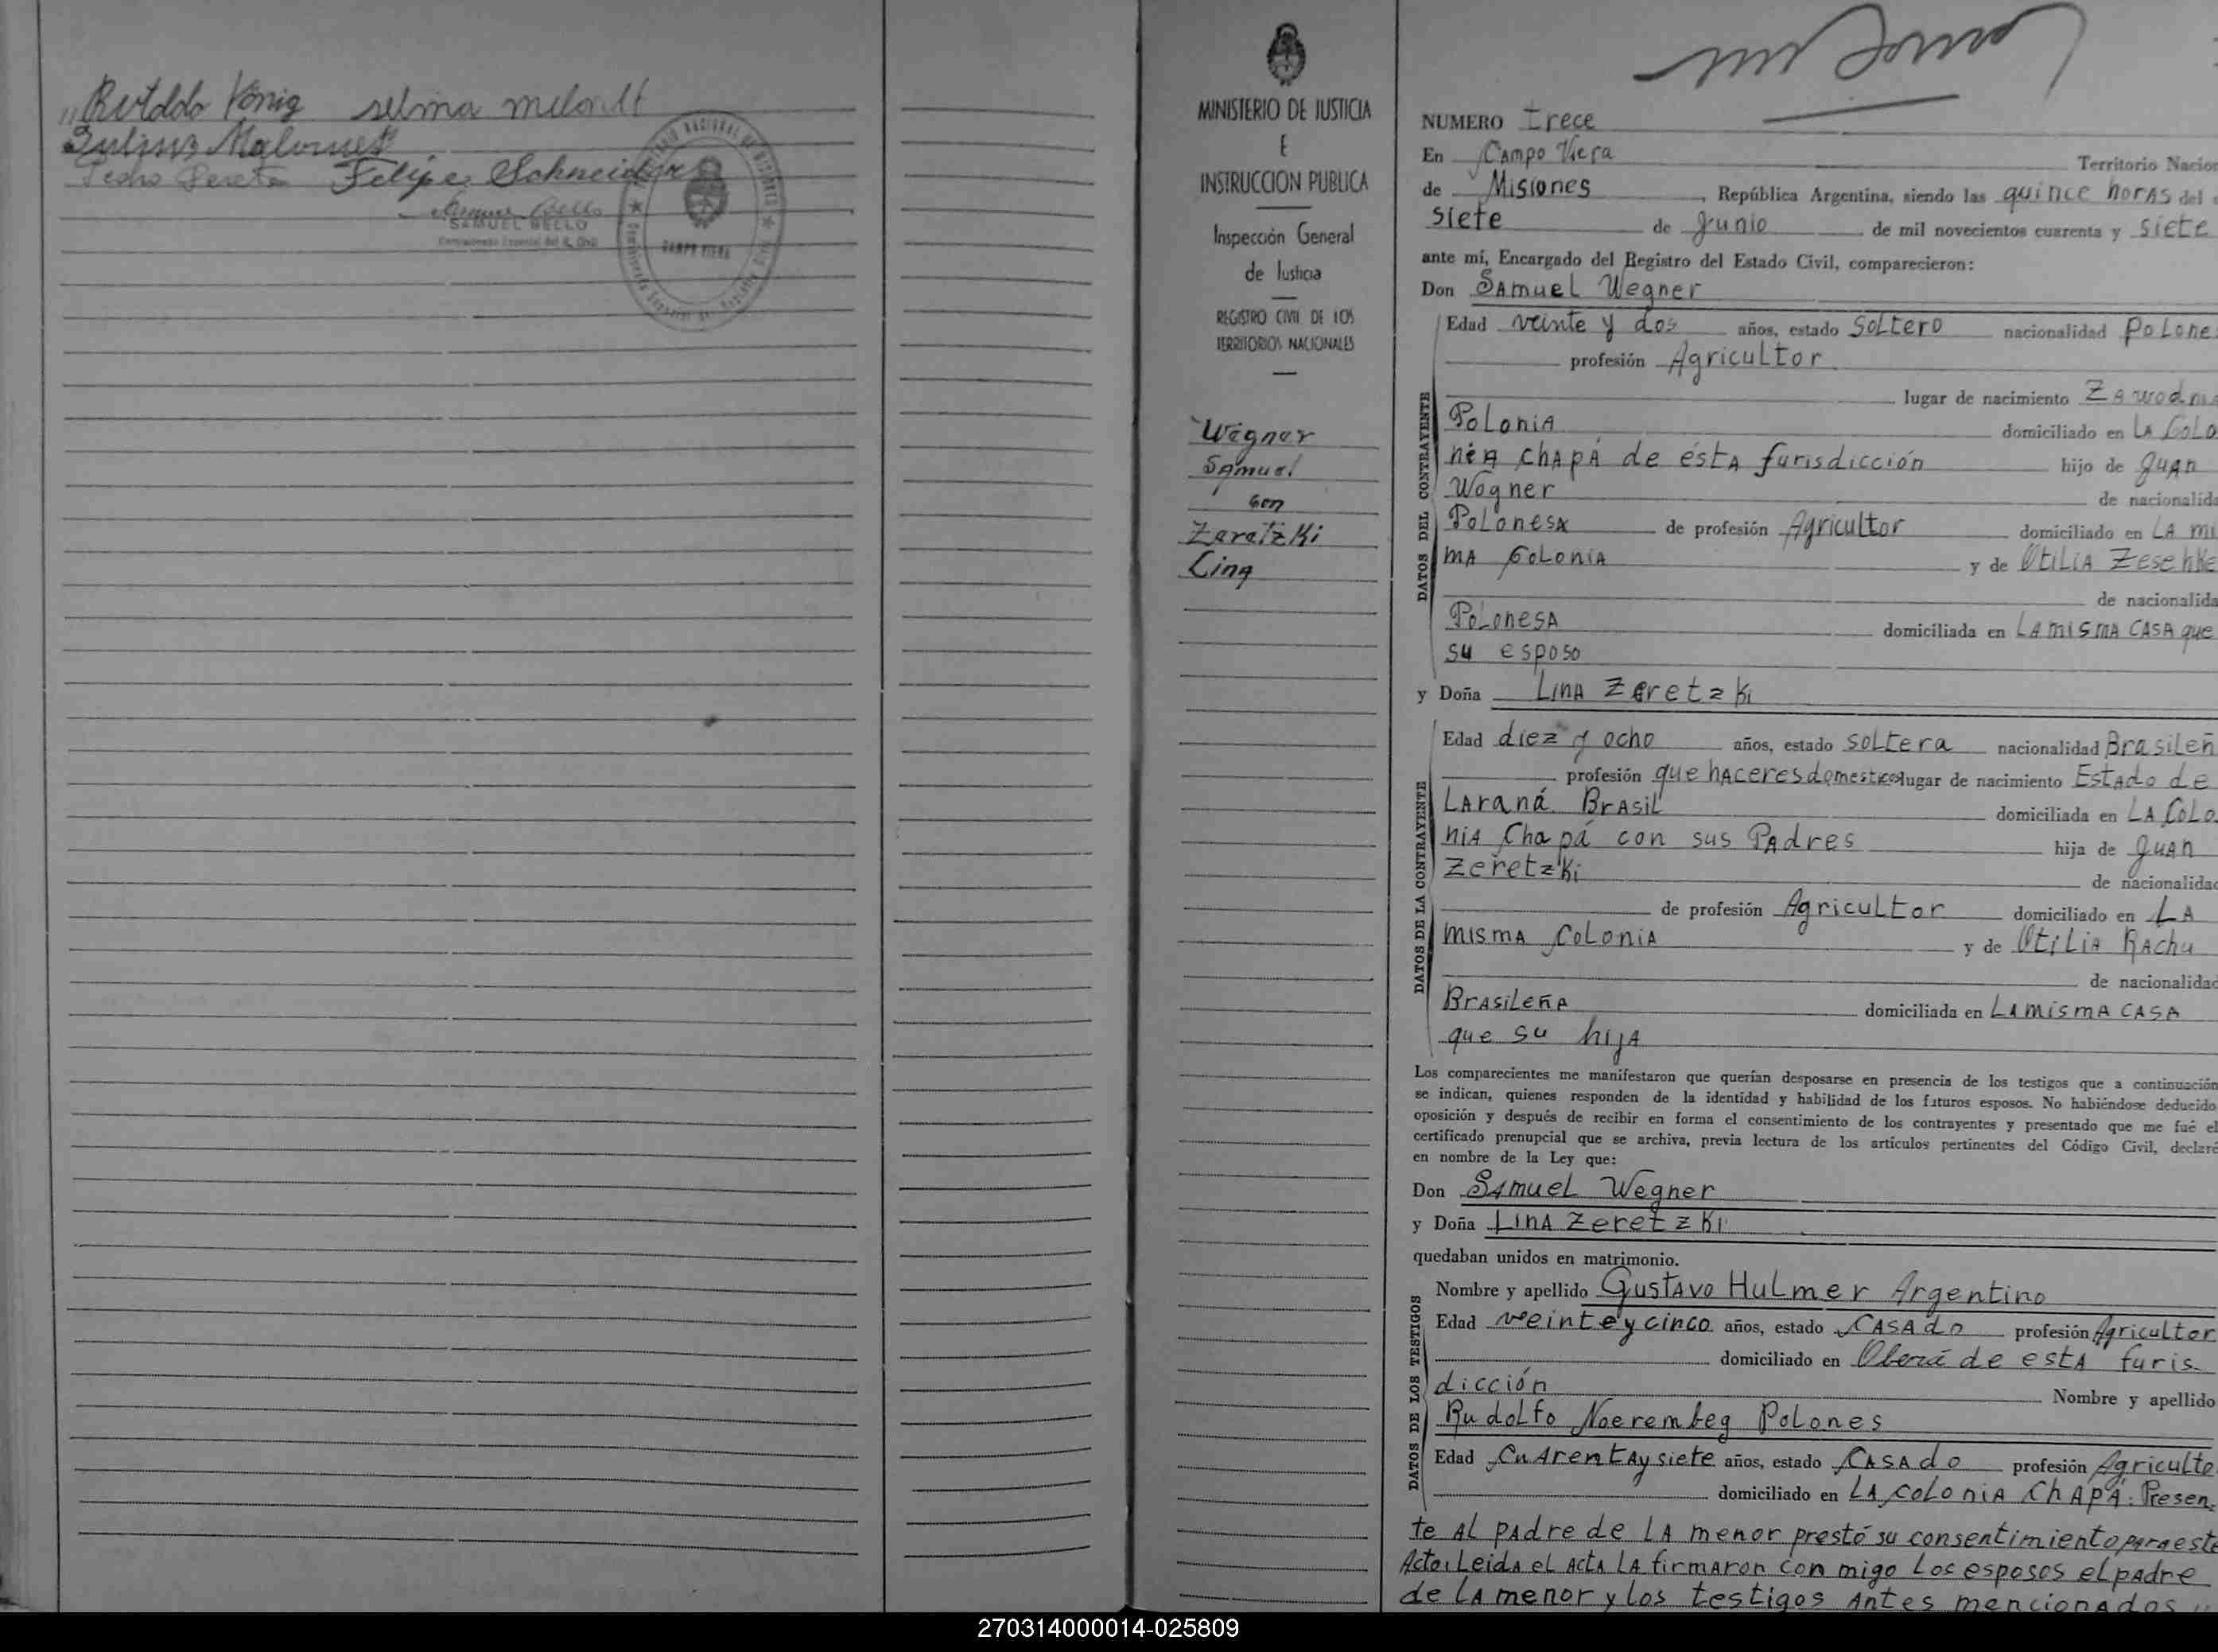 Selma
Felipe Schneider
SAMUEL BELLO
CAMPO VIERA
MINISTERIO DE JUSTICIA
E
INSTRUCCION PUBLICA
Inspección General
de Justicia
REGISTRO CIVIL DE LOS
TERRITORIOS NACIONALES
Wegner
Samuel
con
Zeretzki
Lina
NUMERO trece
En Campo Viera Territorio Nacion
de Misiones, República Argentina, siendo las quince horas del
siete de Junio de mil novecientos cuarenta y siete
ante mí, Encargado del Registro del Estado Civil, comparecieron:
Don Samuel Wegner
DATOS DEL CONTRAYENTE
Edad veinte y dos años, estado soltero nacionalidad Polone
profesión Agricultor
lugar de nacimiento Zawodni
Polonia domiciliado en La Colo
nia Chapá de ésta jurisdicción hijo de Juan
Wegner de nacionalida
Polonesa de profesión Agricultor domiciliado en La mis
ma Colonia y de Otilia
de nacionalida
Polonesa domiciliada en La misma casa que
su esposo
y Doña Lina Zeretzki
DATOS DE LA CONTRAYENTE
Edad diez y ocho años, estado soltera nacionalidad Brasileñ
profesión que haceres domesticos lugar de nacimiento Estado de
Laraná Brasil domiciliada en La Colo
nia Chapá con sus Padres hija de Juan
Zeretzki de nacionalidad
de profesión Agricultor domiciliado en La
misma Colonia y de Otilia Rachu
de nacionalidad
Brasileña domiciliada en La misma casa
que su hija
Los comparecientes me manifestaron que querían desposarse en presencia de los testigos que a continuación
se indican, quienes responden de la identidad y habilidad de los futuros esposos. No habiéndose deducido
oposición y después de recibir en forma el consentimiento de los contrayentes y presentado que me fué el
certificado prenupcial que se archiva, previa lectura de los artículos pertinentes del Código Civil, declaré
en nombre de la Ley que:
Don Samuel Wegner
y Doña Lina Zeretzki
quedaban unidos en matrimonio.
DATOS DE LOS TESTIGOS
Nombre y apellido Gustavo Hulmer Argentino
Edad veinte y cinco años, estado Casado profesión Agricultor
domiciliado en Oberá de esta juris
dicción Nombre y apellido
Rudolfo Noerembeg Polones
Edad Cuarenta y siete años, estado Casado profesión Agriculto
domiciliado en La Colonia Chapá. Presen
te al padre de la menor prestó su consentimiento para este
Acto. Leida el acta la firmaron con migo los esposos el padre
de la menor y los testigos antes mencionados
270314000014-025809